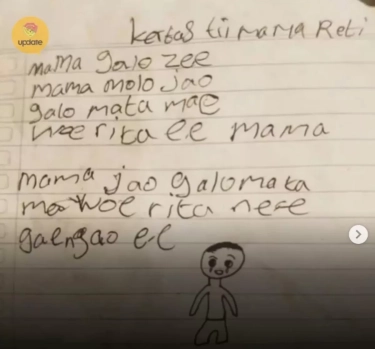 update
kertas tii mama Reti
mama galo zee
mama molo jao
galo mata mae
woe rita ee mama
mama jao galo mata
mae woe rita nee
gaengao ee